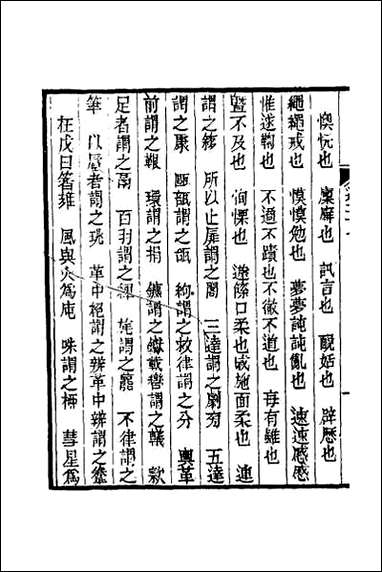 懊忨也　廩廯也　訊言也　靦姡也　辟歷也
繩繩戒也　慔慔勉也　夢夢訰訰亂也　速速慼慼
惟逑鞫也　不遹不蹟也　不徹不道也　每有雖也
曁不及也　恂慄也　籧篨口柔也戚施面柔也　連
謂之簃　所以止扉謂之閎　三達謂之劇旁　五達
謂之康　甌瓿謂之瓵　絇謂之救律謂之分　輿革
前謂之鞎　環謂之捐　鑣謂之钀載轡謂之轙　款
足者謂之鬲　百羽謂之緷　旄謂之藣　不律謂之
筆　以蜃者謂之珧　革中絕謂之辨革中辨謂之韏
在戊曰著雍　風與火爲庉　咮謂之柳　彗星爲